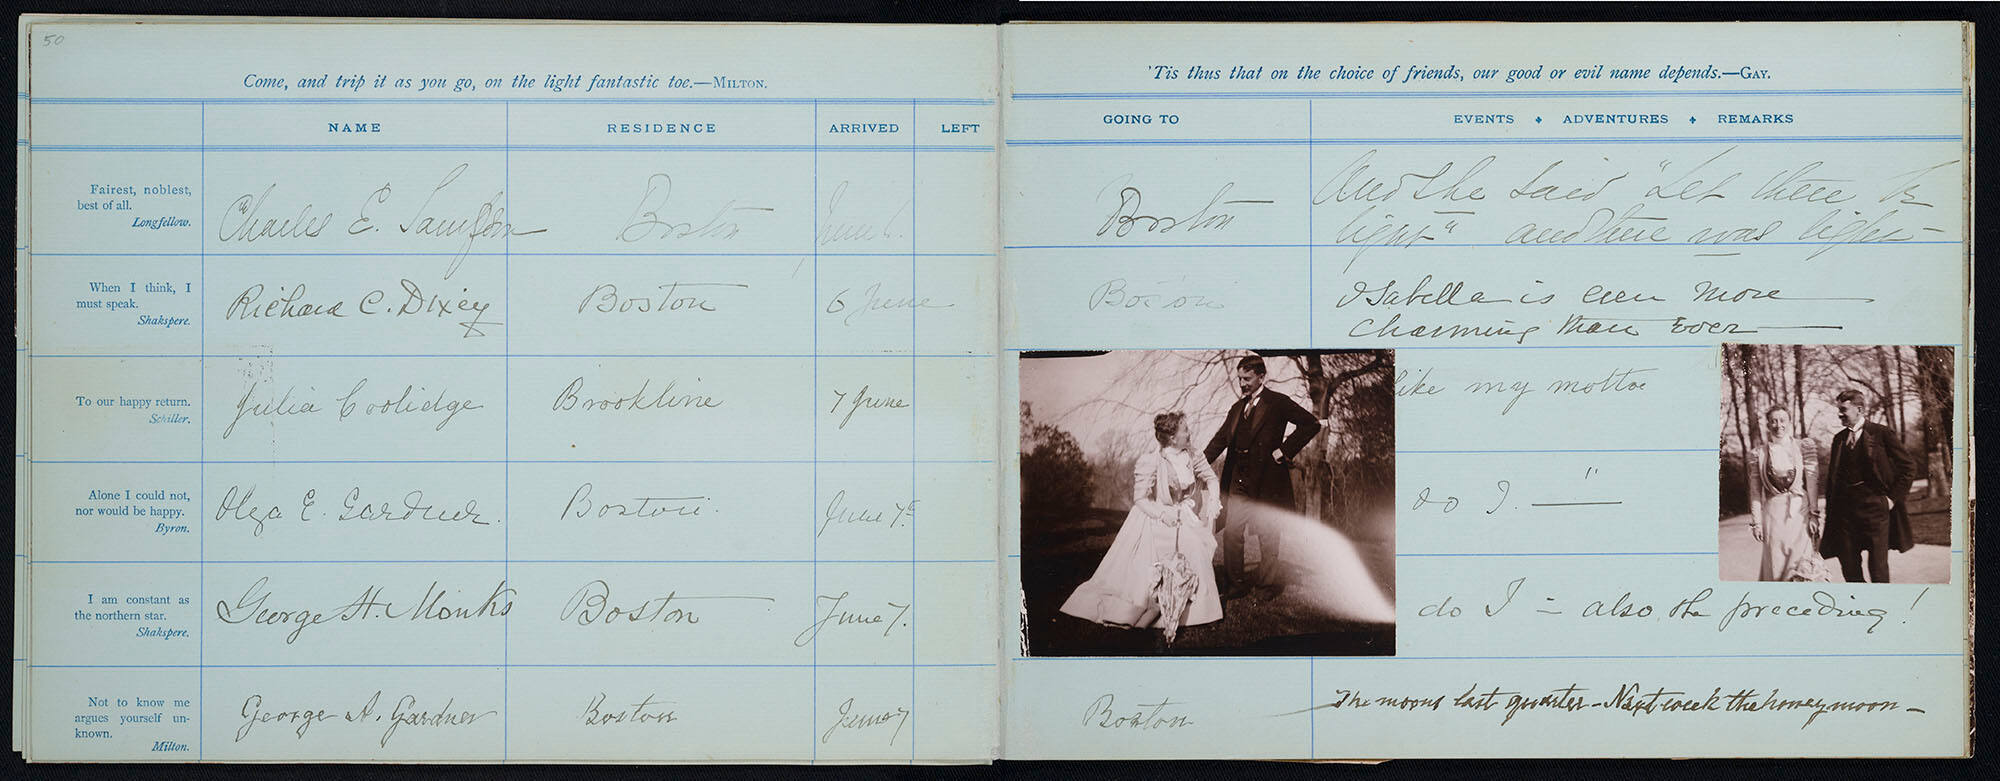 50
Come, and trip it as you go, on the light fantastic toe.—MILTON.
NAME
RESIDENCE
ARRIVED
LEFT
Fairest, noblest,
best of all.
Longfellow.
Charles E. Sampson
Boston
June 6.
When I think, I
must speak.
Shakspere.
Richard C. Dixey
Boston
6 June
To our happy return.
Schiller.
Julia Coolidge
Brookline
7 June
Alone I could not,
nor would be happy.
Byron.
Olga E. Gardner.
Boston.
June 7th
I am constant as
the northern star.
Shakspere.
George H. Monks
Boston
June 7.
Not to know me
argues yourself un-
known.
Milton.
George A. Gardner
Boston
June 7
'Tis thus that on the choice of friends, our good or evil name depends.—GAY.
GOING TO
EVENTS ADVENTURES REMARKS
Boston
And she said "Let there be
light" and there was light—
Boston
Isabella is even more
charming than ever
like my motto
do I. — "
do I = also the preceding!
Boston
The moons last quarter - Next week the honeymoon -